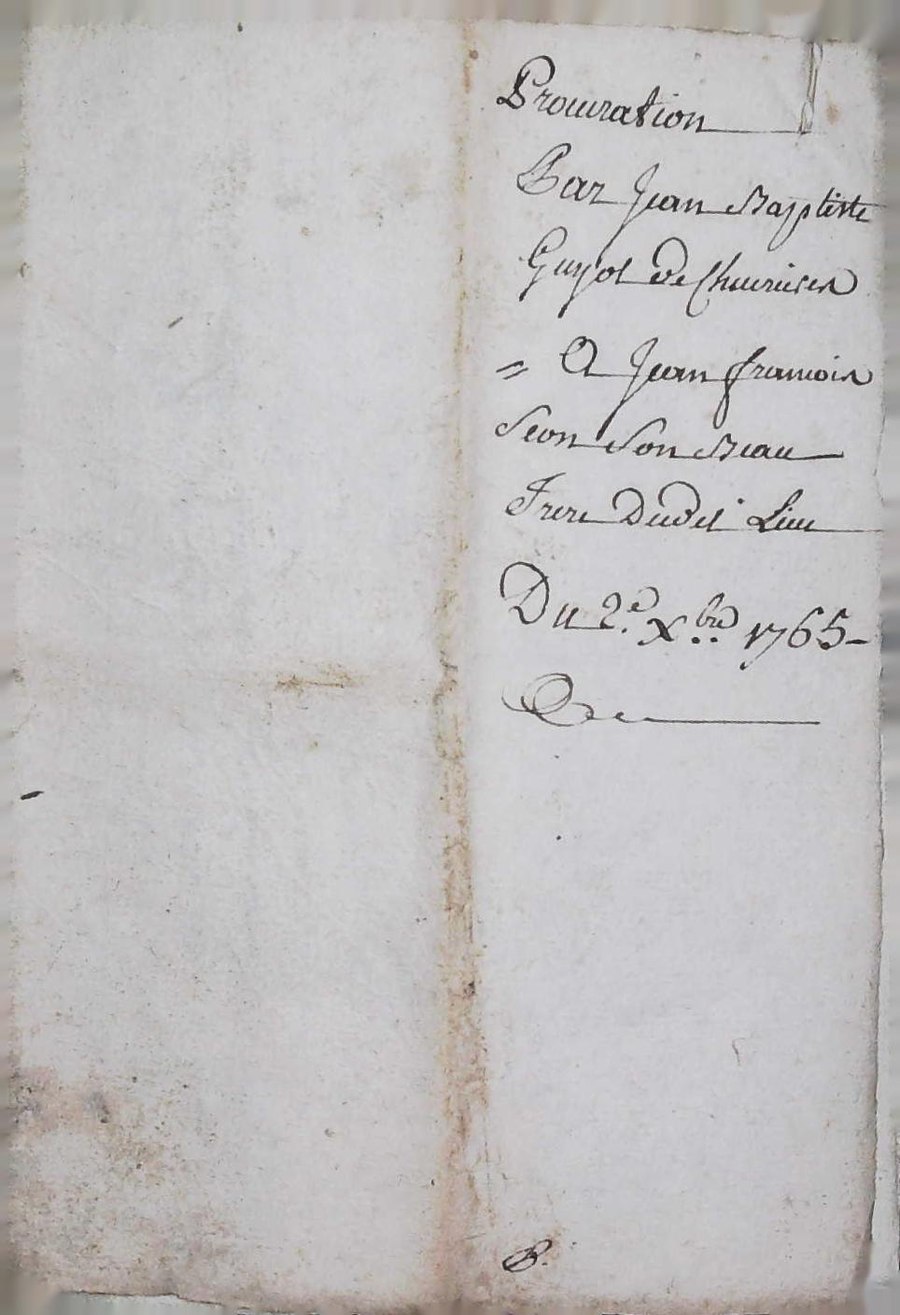 Procuration
Par Jean Baptiste
Guyot de
= A Jean francois
Seon Son Beau
Frere Dudit Lieu
Du 2.e Xbre 1765-
B.